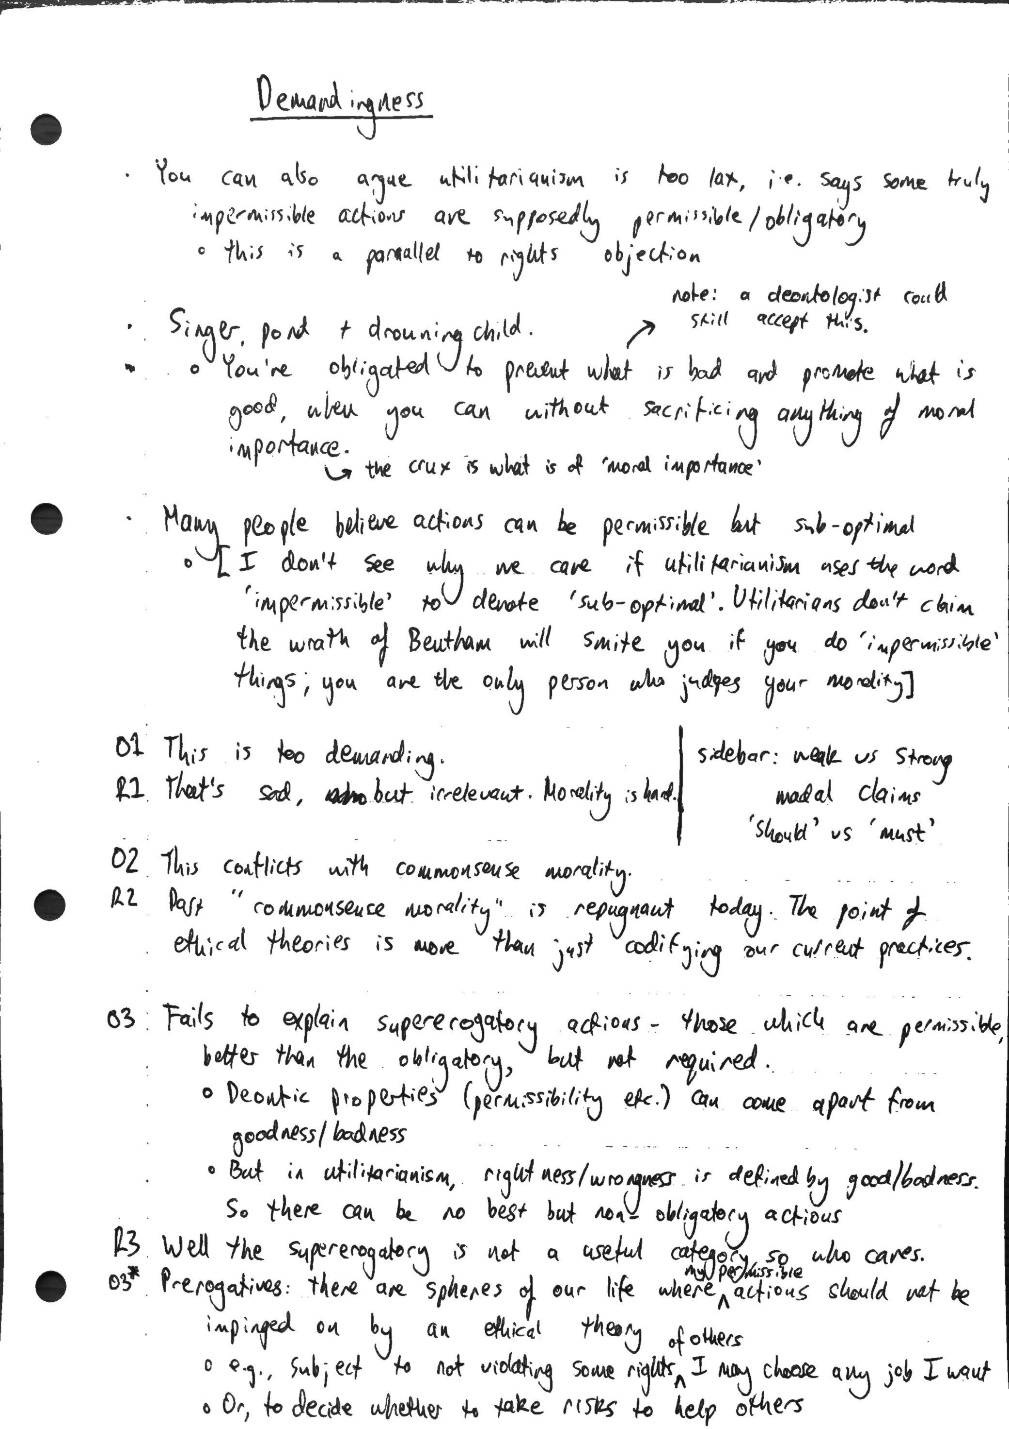 Demandingness
· You can also argue utilitarianism is too lax, i.e. says some truly
impermissible actions are supposedly permissible/obligatory
∘ this is a parallel to rights objection
note: a deontologist could
still accept this.
· Singer, pond + drowning child.
∘ You're obligated to prevent what is bad and promote what is
good, when you can without sacrificing anything of moral
importance.
↳ the crux is what is of 'moral importance'
· Many people believe actions can be permissible but sub-optimal
∘ [I don't see why we care if utilitarianism uses the word
'impermissible' to denote 'sub-optimal'. Utilitarians don't claim
the wrath of Bentham will smite you if you do 'impermissible'
things; you are the only person who judges your morality]
O1 This is too demanding.
R1 That's sad, but irrelevant. Morality is hard.
sidebar: weak vs strong
modal claims
'should' vs 'must'
O2 This conflicts with commonsense morality.
R2 Past "commonsense morality" is repugnant today. The point of
ethical theories is more than just codifying our current practices.
O3 Fails to explain supererogatory actions - those which are permissible,
better than the obligatory, but not required.
∘ Deontic properties (permissibility etc.) can come apart from
goodness/badness
∘ But in utilitarianism, rightness/wrongness is defined by good/badness.
So there can be no best but non-obligatory actions
R3 Well the supererogatory is not a useful category so who cares.
O3* Prerogatives: there are spheres of our life where my permissible actions should not be
impinged on by an ethical theory
∘ e.g., subject to not violating some rights of others, I may choose any job I want
∘ Or, to decide whether to take risks to help others